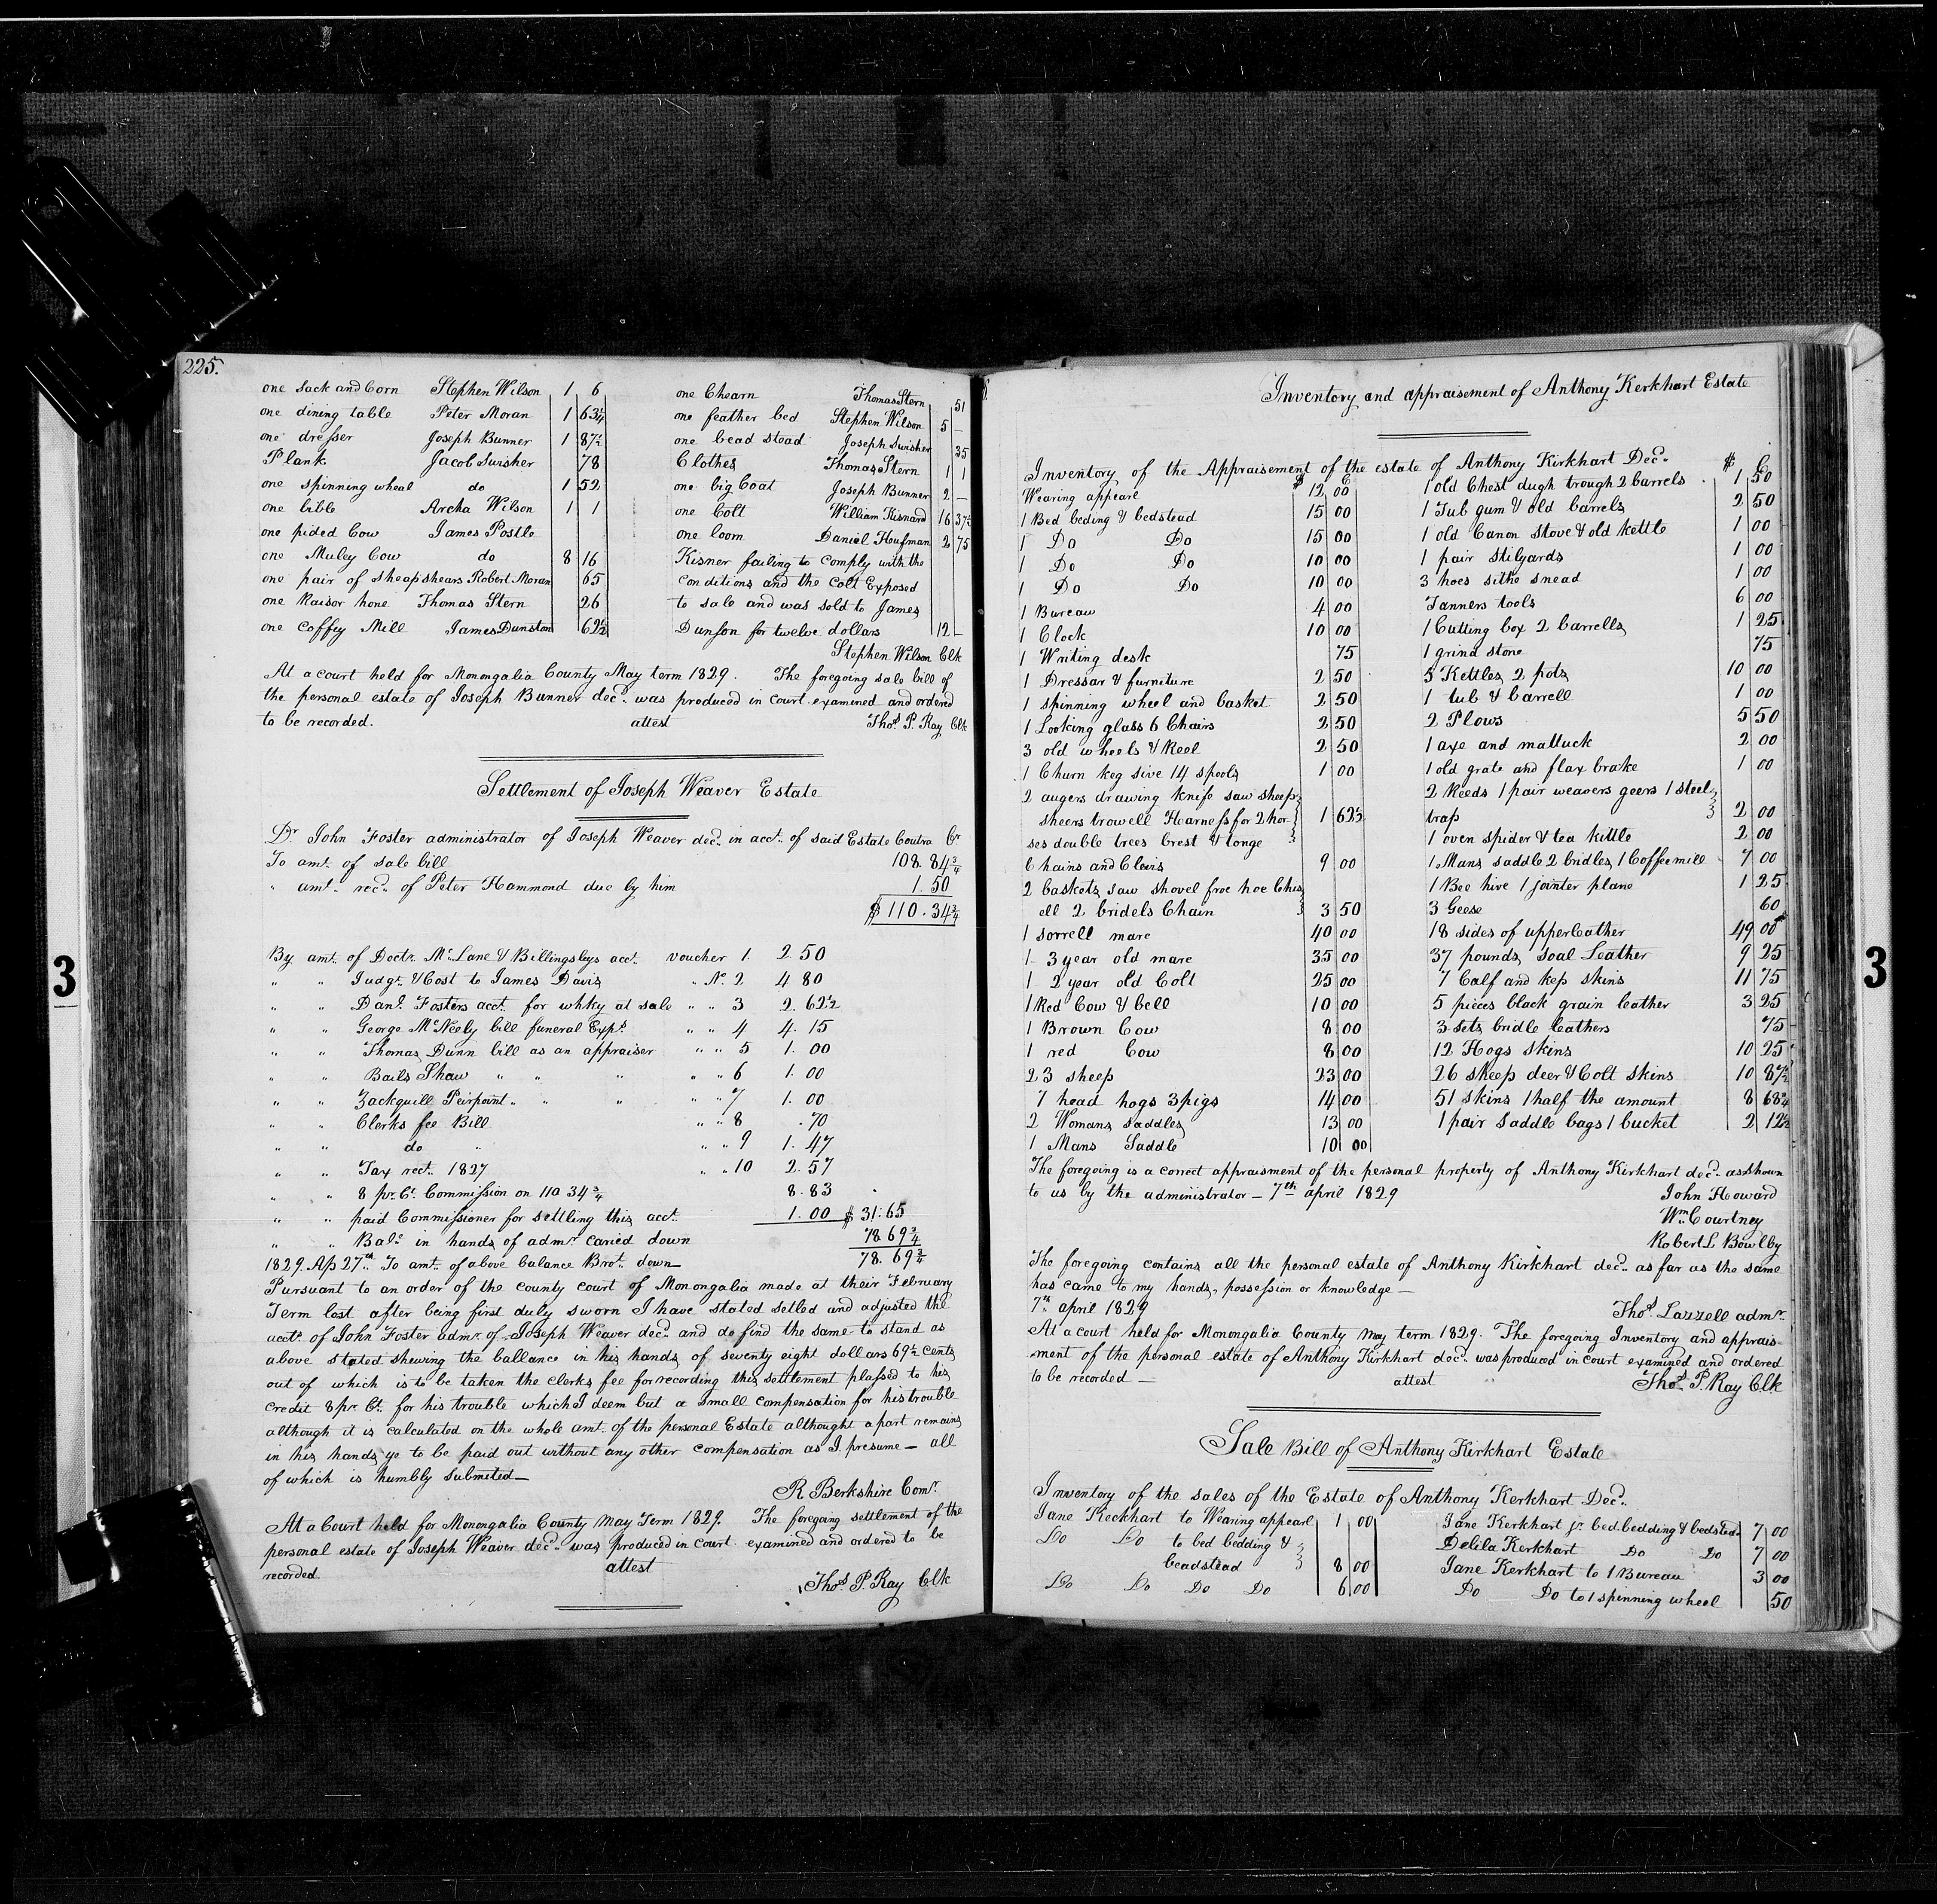 225.
one sack and Corn Stephen Wilson 1 6
one dining table Peter Moran 1 63¼
one dresser Joseph Bunner 1 87½
Plank Jacob Swisher 78
one spinning wheal do 1 52
one bible Archa Wilson 1 1
one pided Cow James Postle
one Muley Cow do 8 16
one pair of sheap shears Robert Moran 65
one Raisor hone Thomas Stern 26
one Coffey Mill James Dunston 62½
one Chearn Thomas Stern 51
one feather bed Stephen Wilson 5 —
one bead stead Joseph Swisher 35
Clothes Thomas Stern 1 1
one big Coat Joseph Bunner 2 —
one Colt William Kisnard 16 37½
one loom Daniel Houfman 2 75
Kisner failing to comply with the
conditions and the Colt Exposed
to sale and was sold to James
Dunson for twelve dollars 12 —
Stephen Wilson Clk
At a court held for Monongalia County May term 1829. The foregoing sale bill of
the personal estate of Joseph Bunner decd. was produced in court examined and ordered
to be recorded. attest Thos. P. Ray Clk
Settlement of Joseph Weaver Estate
Dr. John Foster administrator of Joseph Weaver decd. in acct. of said Estate Contra Cr
To amt. of sale bill 108.84¾
" amt. recd. of Peter Hammond due by him 1.50
$110.34¾
By amt. of Doctr. McLane & Billingsleys acct. voucher 1 2 50
" " Judgt. & Cost to James Davis " No. 2 4 80
" " Danl. Fosters acct. for whky at sale " " 3 2.62½
" " George McNeely bill funeral Exps. " " 4 4.15
" " Thomas Dunn bill as an appraiser " " 5 1.00
" " Bails Shaw " " " " " 6 1.00
" " Zackquill Peirpoint " " " " " 7 1.00
" " Clerks fee Bill " " 8 .70
" " do " " " 9 1.47
" " Tax rect. 1827 " " 10 2.57
" " 8 pr. Ct. Commission on 110 34¾ 8.83
" " paid Commissioner for settling this acct. 1.00 $31.65
" " Balc. in hands of admr. caried down 78 69¾
1829. Ap 27th. To amt. of above balance Brot. down 78.69¾
Pursuant to an order of the county court of Monongalia made at their February
Term last after being first duly sworn I have stated setled and adjusted the
acct. of John Foster admr. of Joseph Weaver decd. and do find the same to stand as
above stated shewing the ballance in his hands of seventy eight dollars 69½ cents
out of which is to be taken the clerks fee for recording this settlement plassed to his
credit 8 pr. Ct. for his trouble which I deem but a small compensation for his trouble
although it is calculated on the whole amt. of the personal Estate althought a part remains
in his hands ye to be paid out without any other compensation as I presume — all
of which is humbly submeted —
R Berkshire Comr.
At a Court held for Monongalia County May Term 1829. The foregoing settlement of the
personal estate of Joseph Weaver decd. was produced in court examined and ordered to be
recorded. attest
Thos. P. Ray Clk
Inventory and appraisement of Anthony Kerkhart Estate
Inventory of the Appraisement of the estate of Anthony Kirkhart Decd.
$ C
Wearing appearl 12 00
1 Bed beding & bedstead 15 00
1 Do Do 15 00
1 Do Do 10 00
1 Do Do 10 00
1 Bureaw 4 00
1 Clock 10 00
1 Writing desk 75
1 Dressar & furniture 2 50
1 spinning wheel and basket 2 50
1 Looking glass 6 Chairs 2 50
3 old wheels & Reel 2 50
1 Churn keg sive 14 spools 1 00
2 augers drawing knife saw sheep
sheers trowell Hearness for 2 hor 1 62½
ses double trees brest & tonge
Chains and Clevis 9 00
2 baskets saw shovel froe hoe Chis
ell 2 bridels Chain 3 50
1 sorrell mare 40 00
1 3 year old mare 35 00
1 2 year old Colt 25 00
1 Red Cow & bell 10 00
1 Brown Cow 8 00
1 red Cow 8 00
23 sheep 23 00
7 head hogs 3 pigs 14 00
2 Womans saddles 13 00
1 Mans Saddle 10 00
$ C
1 old Chest dugh trough 2 barrels 1 50
1 Tub gum & old barrels 2 50
1 old Canon Stove & old kettle 1 00
1 pair stilyards 1 00
3 hoes sithe snead 1 00
Tanners tools 6 00
1 Cutting box 2 barrells 1 25
1 grind stone 75
5 Kettles 2 pots 10 00
1 tub & barrell 1 00
2 Plows 5 50
1 axe and mattuck 2 00
1 old grate and flax brake 1 00
2 Reeds 1 pair weavers geers 1 steel
trap 2 00
1 oven spider & tea kittle 2 00
1 Mans saddle 2 bridles 1 Coffee mill 7 00
1 Bee hive 1 jointer plane 1 25
3 Geese 60
18 sides of upperleather 49 00
37 pounds Soal Leather 9 25
7 Calf and kep skins 11 75
5 pieces black grain leather 3 25
3 sets bridle leathers 75
12 Hogs skins 10 25
26 sheep deer & Colt skins 10 87½
51 skins 1 half the amount 8 68¾
1 pair saddle bags 1 bucket 2 12½
The foregoing is a correct appraisment of the personal property of Anthony Kirkhart decd. as shown
to us by the administrator — 7th april 1829 John Howard
Wm. Courtney
Robert L Bowlby
The foregoing contains all the personal estate of Anthony Kirkhart decd. as far as the same
has came to my hands, possession or knowledge —
7th. april 1829 Thos. Lazzell admr.
At a court held for Monongalia County may term 1829. The foregoing Inventory and apprais-
ment of the personal estate of Anthony Kirkhart decd. was produced in court examined and ordered
to be recorded — attest Thos. P. Ray Clk
Sale Bill of Anthony Kirkhart Estate
Inventory of the sales of the Estate of Anthony Kerkhart Decd.
Jane Keckhart to Wearing appearl 1 00
Do Do to bed bedding &
beadstead 8 00
Do Do Do Do 6 00
Jane Kerkhart jr. bed.bedding & bedsted 7 00
Delila Kerkhart Do Do 7 00
Jane Kerkhart to 1 Bureau 3 00
Do Do to 1 spinning wheel 50
3
3